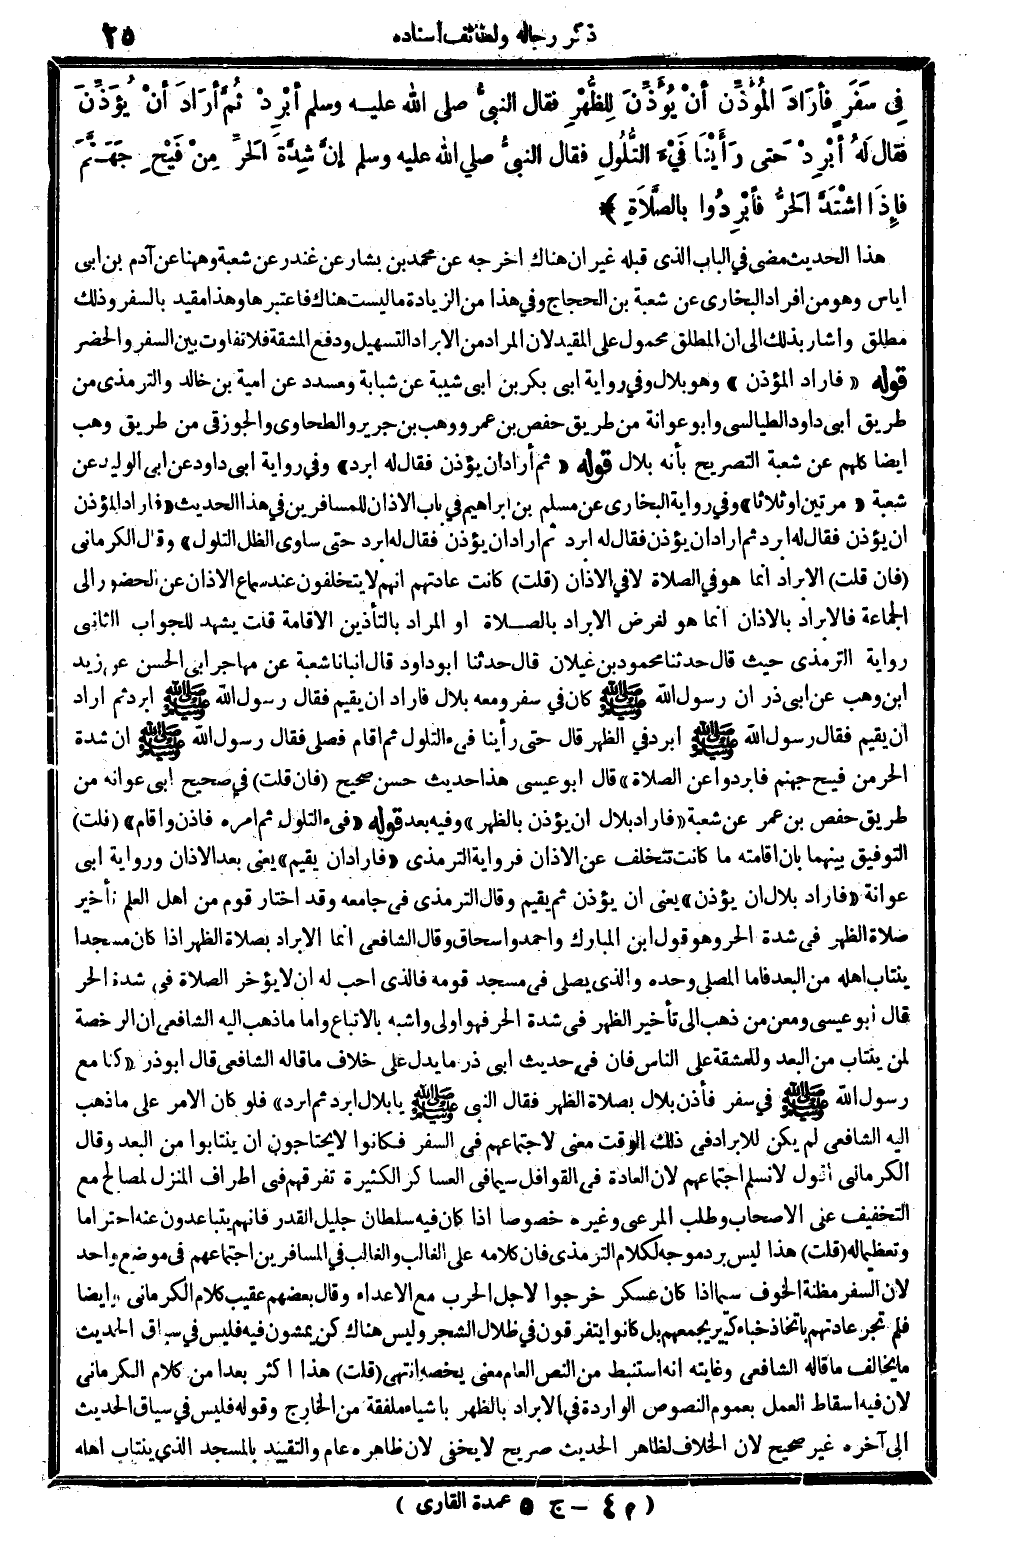 ذكر رجاله ولطائف أسناده
٢٥
فِي سَفَرٍ فأرَادَ المُؤَذِّنُ أنْ يُؤَذِّنَ لِلظُّهْرِ فقال النبيُّ صلى الله عليه وسلم أبْرِدْ ثُمَّ أرَادَ أنْ يُؤَذِّنَ
فقال لَهُ أبْرِدْ حَتى رَأيْنَا فَيْءَ التُّلُولِ فقال النبيُّ صلى الله عليه وسلم إنَّ شِدَّةَ الحَرِّ مِنْ فَيْحِ جَهَنَّمَ
فإِذَا اشْتَدَّ الحَرُّ فأبْرِدُوا بالصَّلاَةِ ﴾
هذا الحديث مضى في الباب الذى قبله غير ان هناك اخرجه عن محمد بن بشار عن غندر عن شعبة وههنا عن آدم بن ابى
اياس وهو من افراد البخارى عن شعبة بن الحجاج وفي هذا من الزيادة ما ليست هناك فاعتبرها وهذا مقيد بالسفر وذلك
مطلق واشار بذلك الى ان المطلق محمول على المقيد لان المراد من الابراد التسهيل ودفع المشقة فلا تفاوت بين السفر والحضر
قوله « فاراد المؤذن » وهو بلال وفي رواية ابى بكر بن ابى شيبة عن شبابة ومسدد عن امية بن خالد والترمذى من
طريق ابى داود الطيالسى وابو عوانة من طريق حفص بن عمر ووهب بن جرير والطحاوى والجوزقى من طريق وهب
ايضا كلهم عن شعبة التصريح بأنه بلال قوله « ثم أراد ان يؤذن فقال له ابرد» وفي رواية ابى داود عن ابى الوليد عن
شعبة « مرتين او ثلاثا» وفي رواية البخارى عن مسلم بن ابراهيم في باب الاذان للمسافرين في هذا الحديث «فاراد المؤذن
ان يؤذن فقال له ابرد ثم اراد ان يؤذن فقال له ابرد ثم اراد ان يؤذن فقال له ابرد حتى ساوى الظل التلول» وقال الكرمانى
(فان قلت) الابراد انما هو في الصلاة لا في الاذان (قلت) كانت عادتهم انهم لا يتخلفون عند سماع الاذان عن الحضور الى
الجماعة فالابراد بالاذان انما هو لغرض الابراد بالصلاة او المراد بالتأذين الاقامة قلت يشهد للجواب الثانى
رواية الترمذى حيث قال حدثنا محمود بن غيلان قال حدثنا ابو داود قال انبانا شعبة عن مهاجر ابى الحسن عن زيد
ابن وهب عن ابى ذر ان رسول الله ﷺ كان في سفر ومعه بلال فاراد ان يقيم فقال رسول الله ﷺ ابرد ثم اراد
ان يقيم فقال رسول الله ﷺ ابرد في الظهر قال حتى رأينا فىء التلول ثم اقام فصلى فقال رسول الله ﷺ ان شدة
الحر من فيح جهنم فابردوا عن الصلاة » قال ابو عيسى هذا حديث حسن صحيح (فان قلت) في صحيح ابى عوانه من
طريق حفص بن عمر عن شعبة «فاراد بلال ان يؤذن بالظهر» وفيه بعد قوله «فىء التلول ثم امره فاذن واقام» (قلت)
التوفيق بينهما بان اقامته ما كانت تتخلف عن الاذان فرواية الترمذى «فاراد ان يقيم» يعنى بعد الاذان ورواية ابى
عوانة «فاراد بلال ان يؤذن» يعنى ان يؤذن ثم يقيم وقال الترمذى فى جامعه وقد اختار قوم من اهل العلم تأخير
صلاة الظهر فى شدة الحر وهو قول ابن المبارك واحمد واسحاق وقال الشافعى انما الابراد بصلاة الظهر اذا كان مسجدا
ينتاب اهله من البعد فاما المصلى وحده والذى يصلى فى مسجد قومه فالذى احب له ان لا يؤخر الصلاة فى شدة الحر
قال ابو عيسى ومعن من ذهب الى تأخير الظهر فى شدة الحر فهو اولى واشبه بالاتباع واما ما ذهب اليه الشافعى ان الرخصة
لمن ينتاب من البعد وللمشقة على الناس فان في حديث ابى ذر ما يدل على خلاف ما قاله الشافعى قال ابو ذر «كنا مع
رسول الله ﷺ في سفر فأذن بلال بصلاة الظهر فقال النبى ﷺ يا بلال ابرد ثم ابرد» فلو كان الامر على ما ذهب
اليه الشافعى لم يكن للابراد في ذلك الوقت معنى لاجتماعهم فى السفر فكانوا لا يحتاجون ان ينتابوا من البعد وقال
الكرمانى اقول لا نسلم اجتماعهم لان العادة فى القوافل سيما فى العساكر الكثيرة تفرقهم فى اطراف المنزل لمصالح مع
التخفيف على الاصحاب وطلب المرعى وغيره خصوصا اذا كان فيه سلطان جليل القدر فانهم يتباعدون عنه احتراما
وتعظيما له (قلت) هذا ليس برد موجه لكلام الترمذى فان كلامه على الغالب والغالب في المسافرين اجتماعهم فى موضع واحد
لان السفر مظنة الخوف سيما اذا كان عسكر خرجوا لاجل الحرب مع الاعداء وقال بعضهم عقيب كلام الكرمانى وايضا
فلم تجر عادتهم باتخاذ خباء كبير يجمعهم بل كانوا يتفرقون في ظلال الشجر وليس هناك كن يمشون فيه فليس في سياق الحديث
ما يخالف ما قاله الشافعى وغايته انه استنبط من النص العام معنى يخصه انتهى (قلت) هذا اكثر بعدا من كلام الكرمانى
لان فيه اسقاط العمل بعموم النصوص الواردة في الابراد بالظهر باشياء ملفقة من الخارج وقوله فليس في سياق الحديث
الى آخره غير صحيح لان الخلاف لظاهر الحديث صريح لا يخفى لان ظاهره عام والتقييد بالمسجد الذي ينتاب اهله
( م ٤ – ج ٥ عمدة القارى )